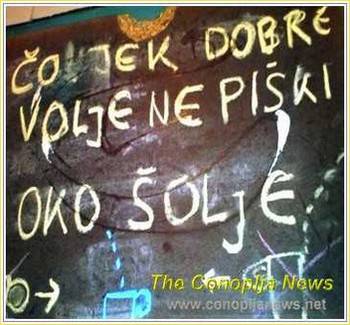 ČOVJEK DOBRE
VOLJE NE PIŠKI
OKO ŠOLJE
The Conoplja News
www.conopljanews.net